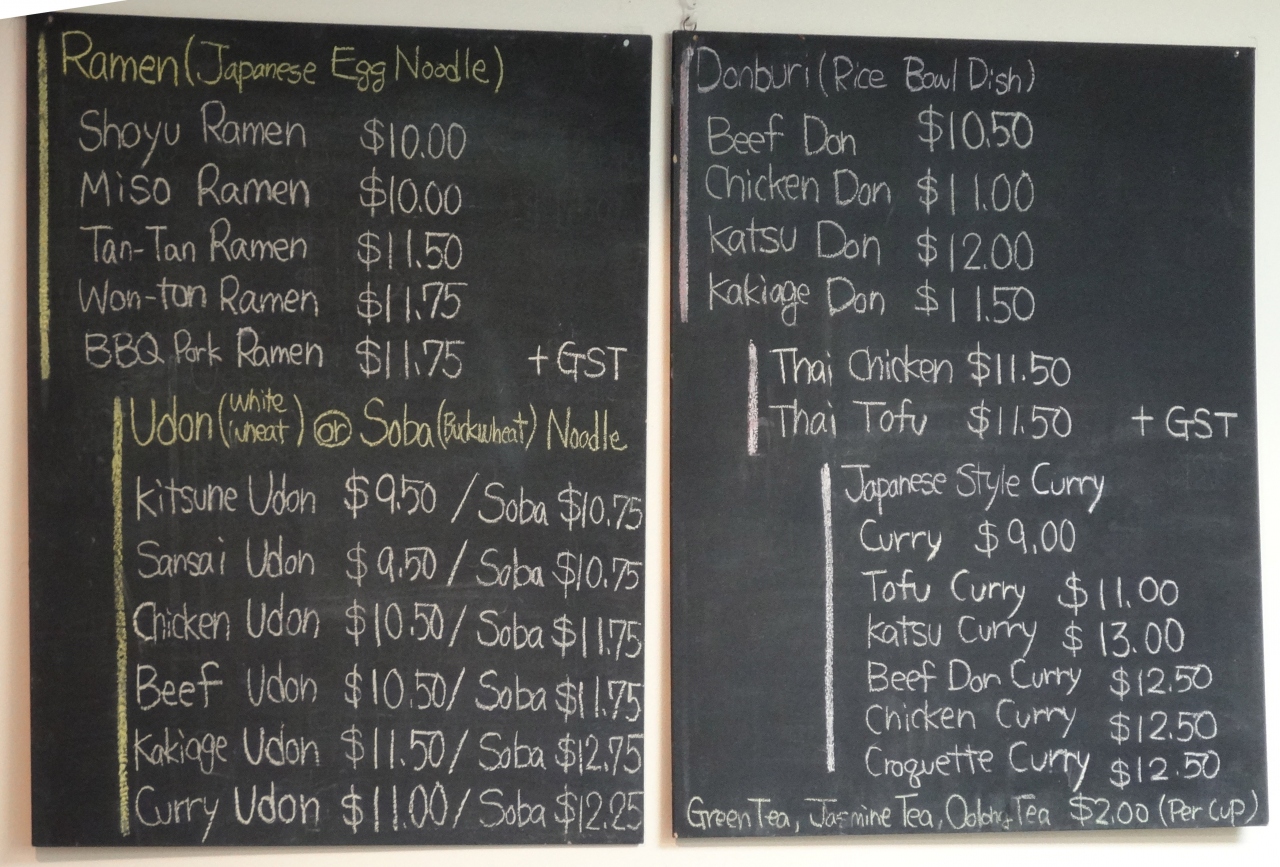 Ramen (Japanese Egg Noodle)
Shoyu Ramen $10.00
Miso Ramen $10.00
Tan-Tan Ramen $11.50
Won-ton Ramen $11.75
BBQ Pork Ramen $11.75 + GST
Udon (white wheat) or Soba (Buckwheat) Noodle
Kitsune Udon $9.50 / Soba $10.75
Sansai Udon $9.50 / Soba $10.75
Chicken Udon $10.50 / Soba $11.75
Beef Udon $10.50 / Soba $11.75
Kakiage Udon $11.50 / Soba $12.75
Curry Udon $11.00 / Soba $12.25
Donburi (Rice Bowl Dish)
Beef Don $10.50
Chicken Don $11.00
Katsu Don $12.00
Kakiage Don $11.50
Thai Chicken $11.50
Thai Tofu $11.50 + GST
Japanese Style Curry
Curry $9.00
Tofu Curry $11.00
Katsu Curry $13.00
Beef Don Curry $12.50
Chicken Curry $12.50
Croquette Curry $12.50
Green Tea, Jasmine Tea, Oolong Tea $2.00 (Per cup)